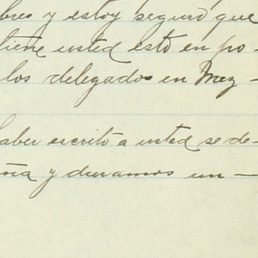 bres y estoy seguro que
tiene usted esto en po-
los delegados en Mez-
haber escrito a usted se de-
ña y duramos un -